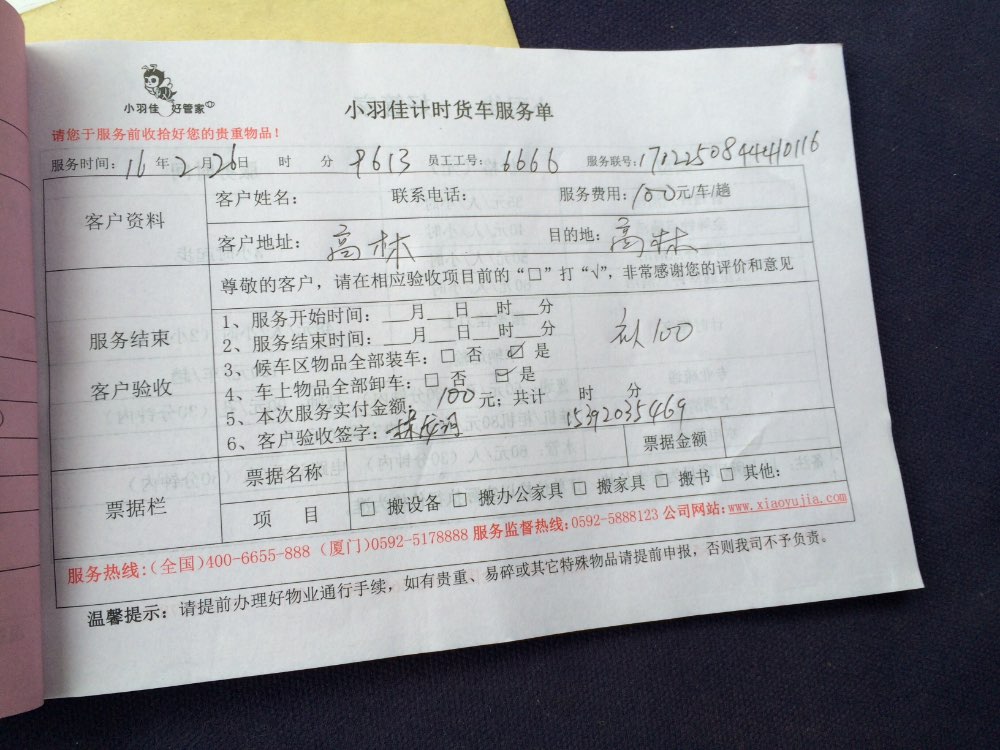 小羽佳 好管家
小羽佳计时货车服务单
请您于服务前收拾好您的贵重物品！
服务时间：16年2月26日 时 分 9613 员工工号：6666 服务联号：1702250844410116
客户资料
客户姓名： 联系电话： 服务费用：100元/车/趟
客户地址： 高林 目的地：高林
尊敬的客户，请在相应验收项目前的“□”打“√”，非常感谢您的评价和意见
服务结束
客户验收
1、服务开始时间：___月___日___时___分
2、服务结束时间：___月___日___时___分
3、候车区物品全部装车：□ 否 ☑ 是
4、车上物品全部卸车：□ 否 ☑ 是
5、本次服务实付金额：100元；共计 时 分
6、客户验收签字： 15392035469
补100
票据栏
票据名称 票据金额
项 目 □ 搬设备 □ 搬办公家具 □ 搬家具 □ 搬书 □ 其他：
服务热线：（全国）400-6655-888（厦门）0592-5178888 服务监督热线：0592-5888123 公司网站：www.xiaoyujia.com
温馨提示：请提前办理好物业通行手续，如有贵重、易碎或其它特殊物品请提前申报，否则我司不予负责。